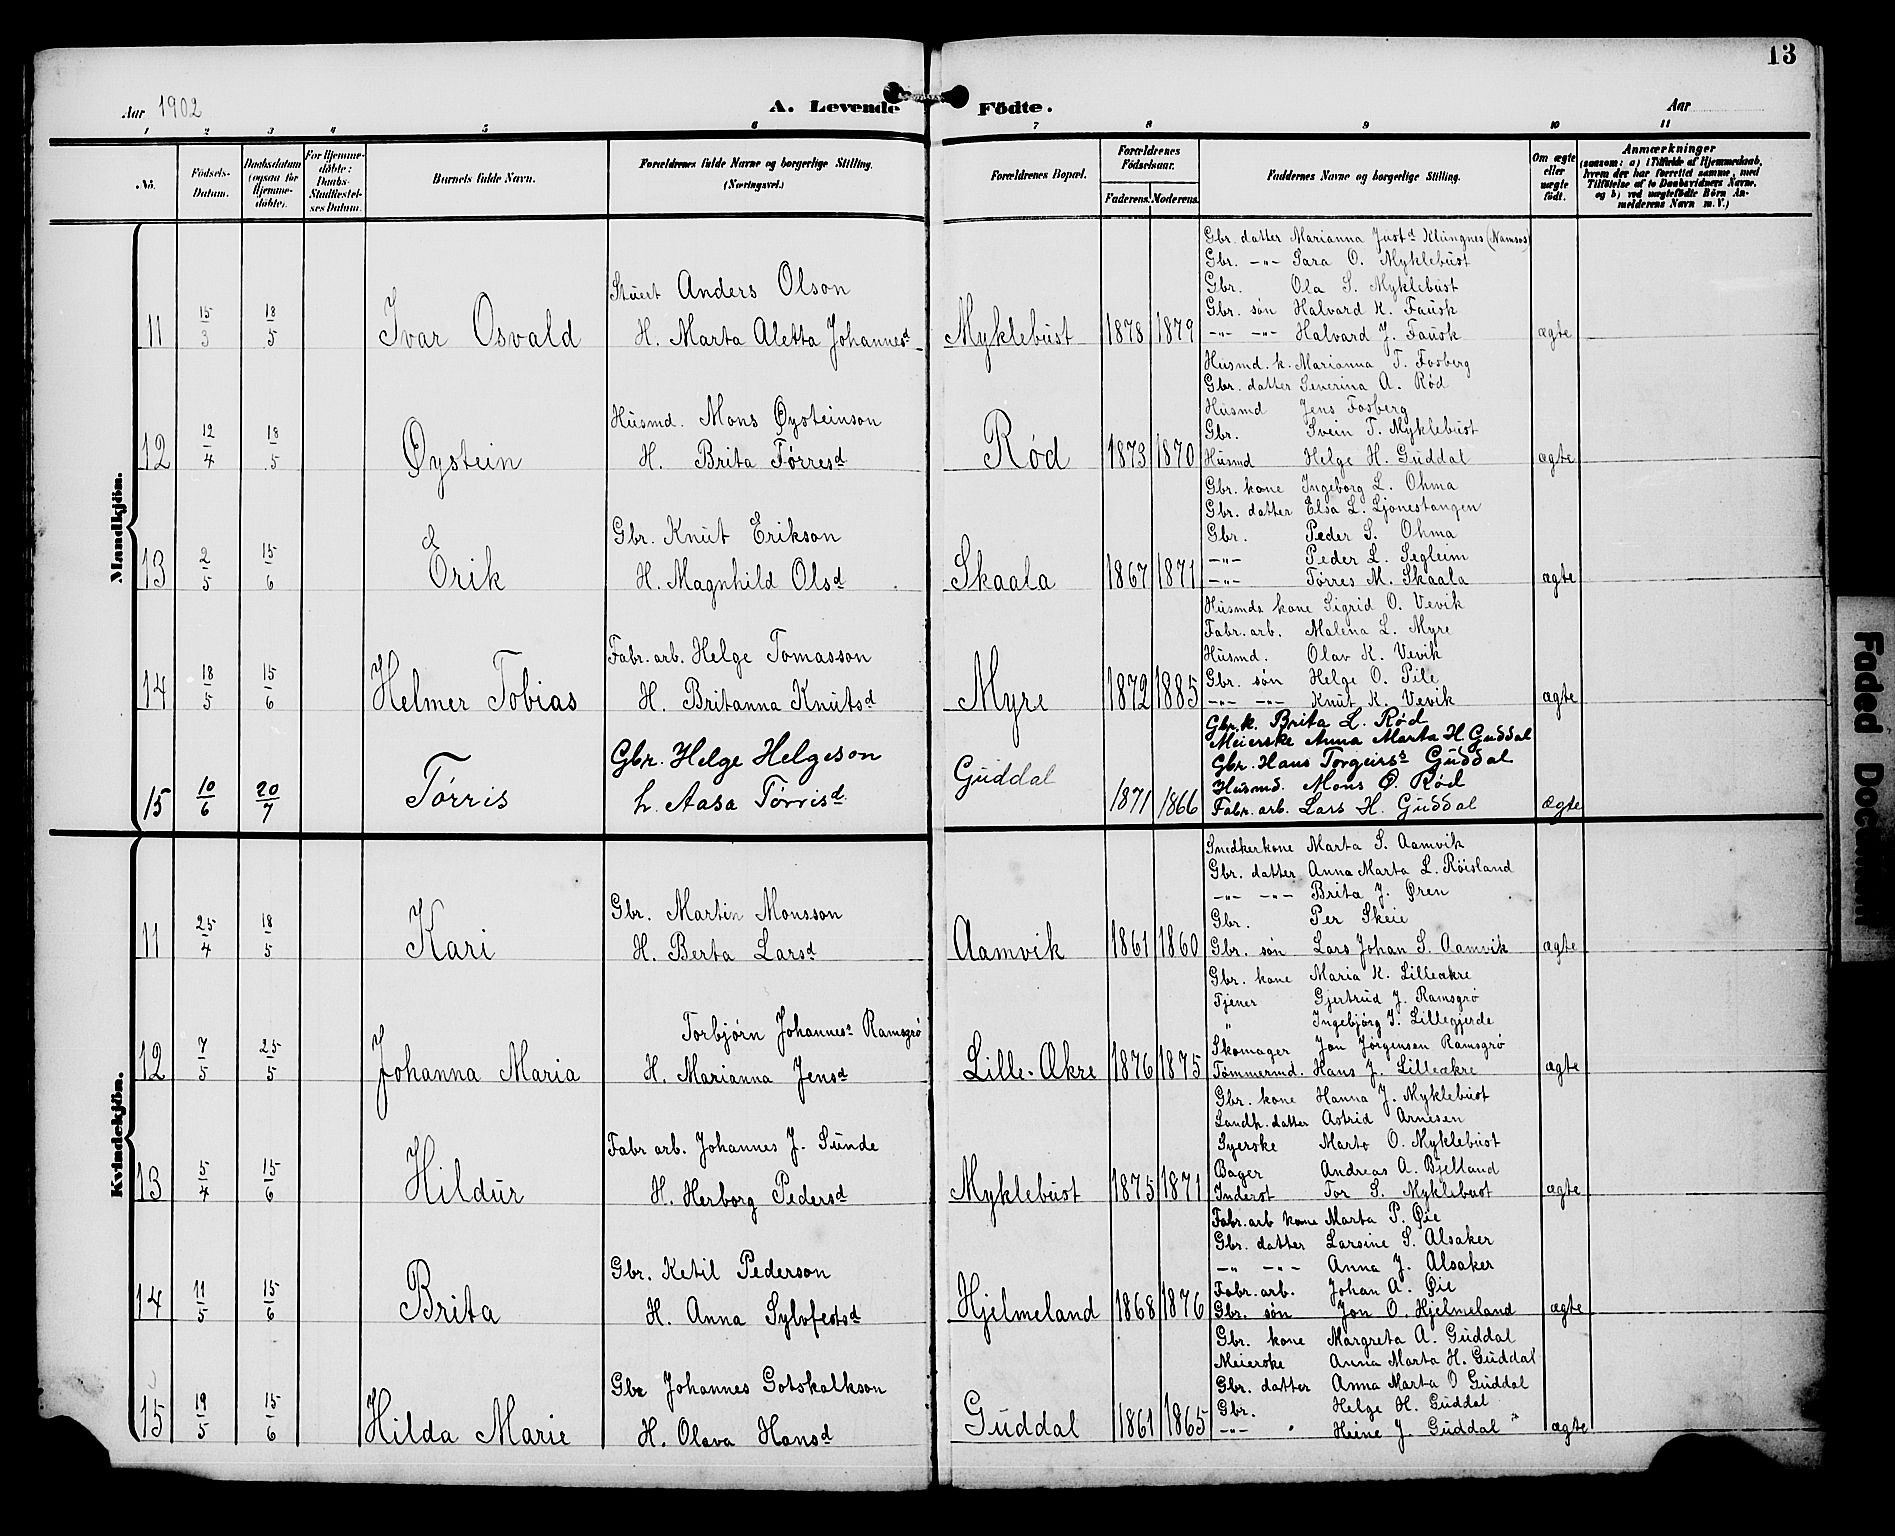 13
Aar 1902
A. Levende Födte.
Aar
1 2 3 4 5 6 7 8 9 10 11
No.
Födsels-Datum.
Daabsdatum (ogsaa for Hjemme-döbte).
For Hjemme-döbte: Daabs-Stadfæstel-ses Datum.
Barnets fulde Navn.
Forældrenes fulde Navne og borgerlige Stilling. (Næringsvei.)
Forældrenes Bopæl.
Forældrenes Födselsaar.
Faderens. Moderens.
Faddernes Navne og borgerlige Stilling.
Om ægte eller uægte födt.
Anmærkninger
(saasom: a) i Tilfælde af Hjemmedaab, hvem der har forrettet samme, med Tilföielse af to Daabsvidners Navne, og b) ved uægtefödte Börn An-melderens Navn m. V.)
Mandkjön.
11 15/3 18/5 Ivar Osvald
Stuert Anders Olson
H. Marta Aletta Johannesd
Myklebust 1878 1879
Gbr. datter Marianna Justd Klungnes (Namsos)
Gbr. -"- Sara O. Myklebust
Gbr. Ola S. Myklebust
Gbr. søn Halvard K. Fausk
-"- -"- Halvard J. Fausk
ægte
12 12/4 18/5 Øystein
Husmd. Mons Øysteinson
H. Brita Tørresd
Rød 1873 1870
Husmd. k. Marianna T. Fosberg
Gbr. datter Severina A. Rød
Husmd Jens Fosberg
Gbr. Svein T. Myklebust
Husmd Helge H. Guddal
ægte
13 2/5 15/6 Erik
Gbr. Knut Erikson
H. Magnhild Olsd
Skaala 1867 1871
Gbr. kone Ingeborg L. Ohma
Gbr. datter Elsa L. Ljonestangen
Gbr. Peder S. Ohma
-"- Peder L. Segleim
-"- Tørres M. Skaala
ægte
14 18/5 15/6 Helmer Tobias
Fabr. arb. Helge Tomasson
H. Britanna Knutsd
Myre 1872 1885
Husmds kone Sigrid O. Vevik
Fabr. arb. Malena L. Myre
Husmd. Olav K. Vevik
Gbr. søn Helge O. Pile
-"- -"- Knut K. Vevik
ægte
15 10/6 20/7 Tørris
Gbr. Helge Helgeson
h. Aasa Tørrisd.
Guddal 1871 1866
Gbr. k. Brita L. Rød
Meierske Anna Marta H. Guddal
Gbr. Hans Torgeirss Guddal
Husmd. Mons Ø. Rød
Fabr. arb. Lars H. Guddal
Ægte
Kvindekjön.
11 25/4 18/5 Kari
Gbr. Martin Monsson
H. Berta Larsd
Aamvik 1861 1860
Snedkerkone Marta S. Aamvik
Gbr. datter Anna Marta L. Røisland
-"- -"- Brita J. Øren
Gbr. Per Skeie
Gbr. søn Lars Johan S. Aamvik
ægte
12 7/5 25/5 Johanna Maria
Torbjørn Johanness Ramsgrø
H. Marianna Jensd
Lille-Ækre 1876 1875
Gbr. kone Maria K. Lilleækre
Tjener Gjertrud J. Ramsgrø
" Ingebjørg J. Lillegjerde
Skomager Jon Jørgensen Ramsgrø
Tømmermd. Hans J. Lilleækre
ægte
13 5/4 15/6 Hildur
Fabr arb. Johannes J. Sunde
H. Herborg Pedersd
Myklebust 1875 1871
Gbr. kone Hanna J. Myklebust
Landh. datter Astrid Arnesen
Syerske Marta O. Myklebust
Bager Andreas A. Bjelland
Inderst Tor S. Myklebust
ægte
14 11/5 15/6 Brita
Gbr. Ketil Pederson
H. Anna Sylvfestsd
Hjelmeland 1868 1876
Fabr. arb kone Marta P. Øie
Gbr. datter Larsine S. Alsaker
-"- -"- Anna J. Alsaker
Fabr. arb. Johan A. Øie
Gbr. søn Jon O. Hjelmeland
ægte
15 19/5 15/6 Hilda Marie
Gbr Johannes Gotskalkson
H. Olava Hansd
Guddal 1861 1865
Gbr. kone Margreta A. Guddal
Meierske Anna Marta H. Guddal
Gbr. datter Anna Marta O Guddal
Gbr. Helge H. Guddal
-"- Heine J. Guddal
ægte
Faded Document